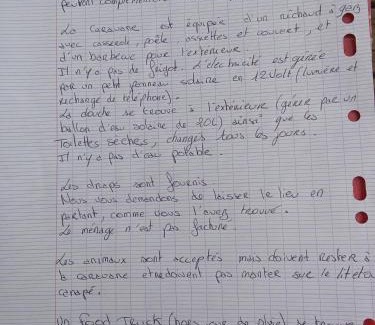 peuvent complémen
La Caravane est équipée d'un réchaud à gaz
avec casserole, poêle, assiettes et couvert, et
d'un barbecue pour l'extérieur
Il n'y a pas de frigot. L'électricité est gérée
par un petit panneau solaire en 12 Volt (lumière et
rechange de téléphone).
La douche se trouve à l'extérieure (gérée par un
ballon d'eau solaire de 20L) ainsi que les
Toilettes sèches, changés tous les jours.
Il n'y a pas d'eau potable.
Les draps sont fournis.
Nous vous demandons de laisser le lieu en
partant, comme vous l'avez trouvé.
Le ménage n'est pas facturé.
Les animaux sont acceptés mais doivent rester à
la caravane et ne doivent pas monter sur le lit et le
canapé.
Un Food Truck (hors